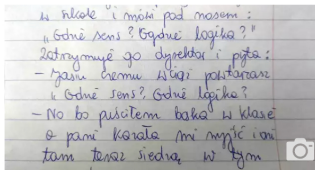 w szkole i mówi pod nosem:
"Gdzie sens? Gdzie logika?"
Zatrzymuje go dyrektor i pyta:
- Jasiu czemu w
"Gdzie sens? Gdzie logika?
- No bo puściłem bąka w klasie
a pani kazała mi wyjść i oni
tam teraz siedzą w tym